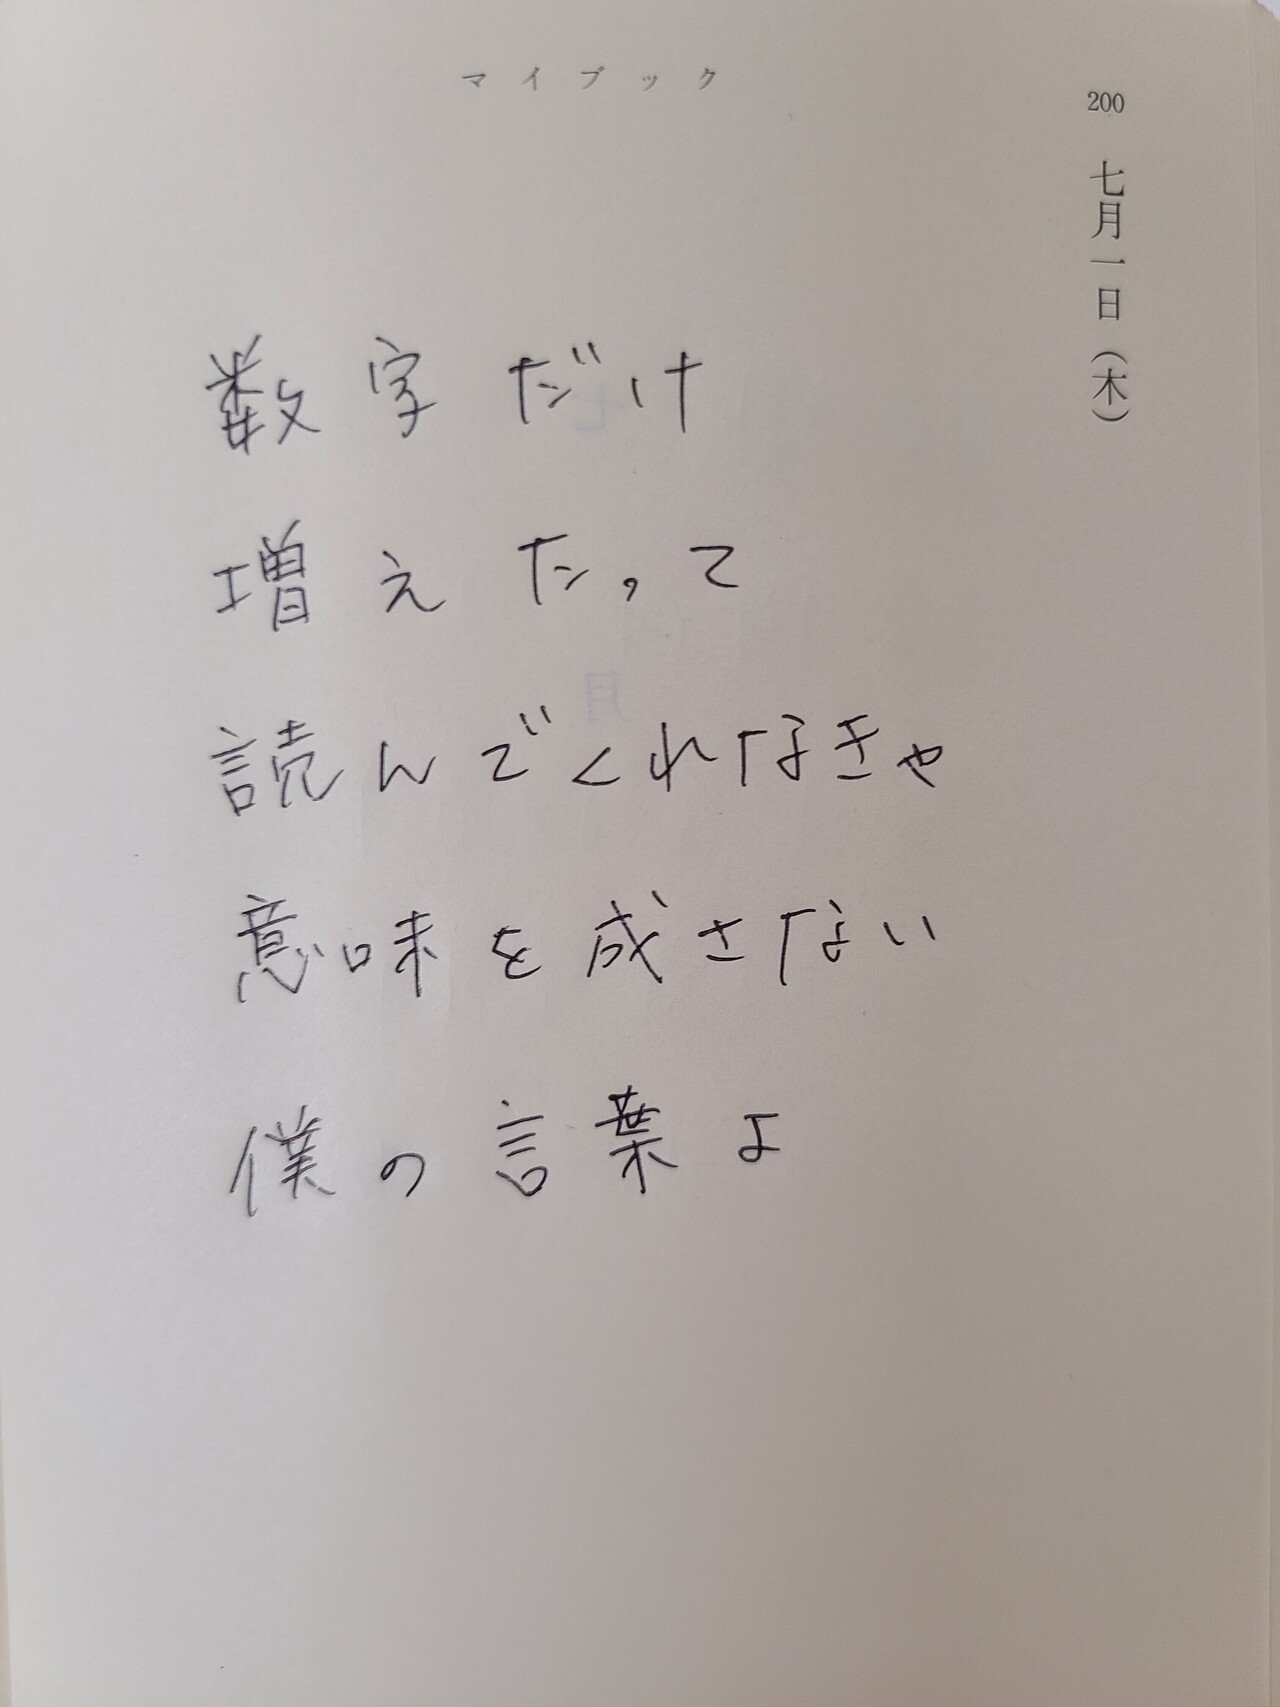 マイブック
200 七月一日（木）
数字だけ
増えたって
読んでくれなきゃ
意味を成さない
僕の言葉よ